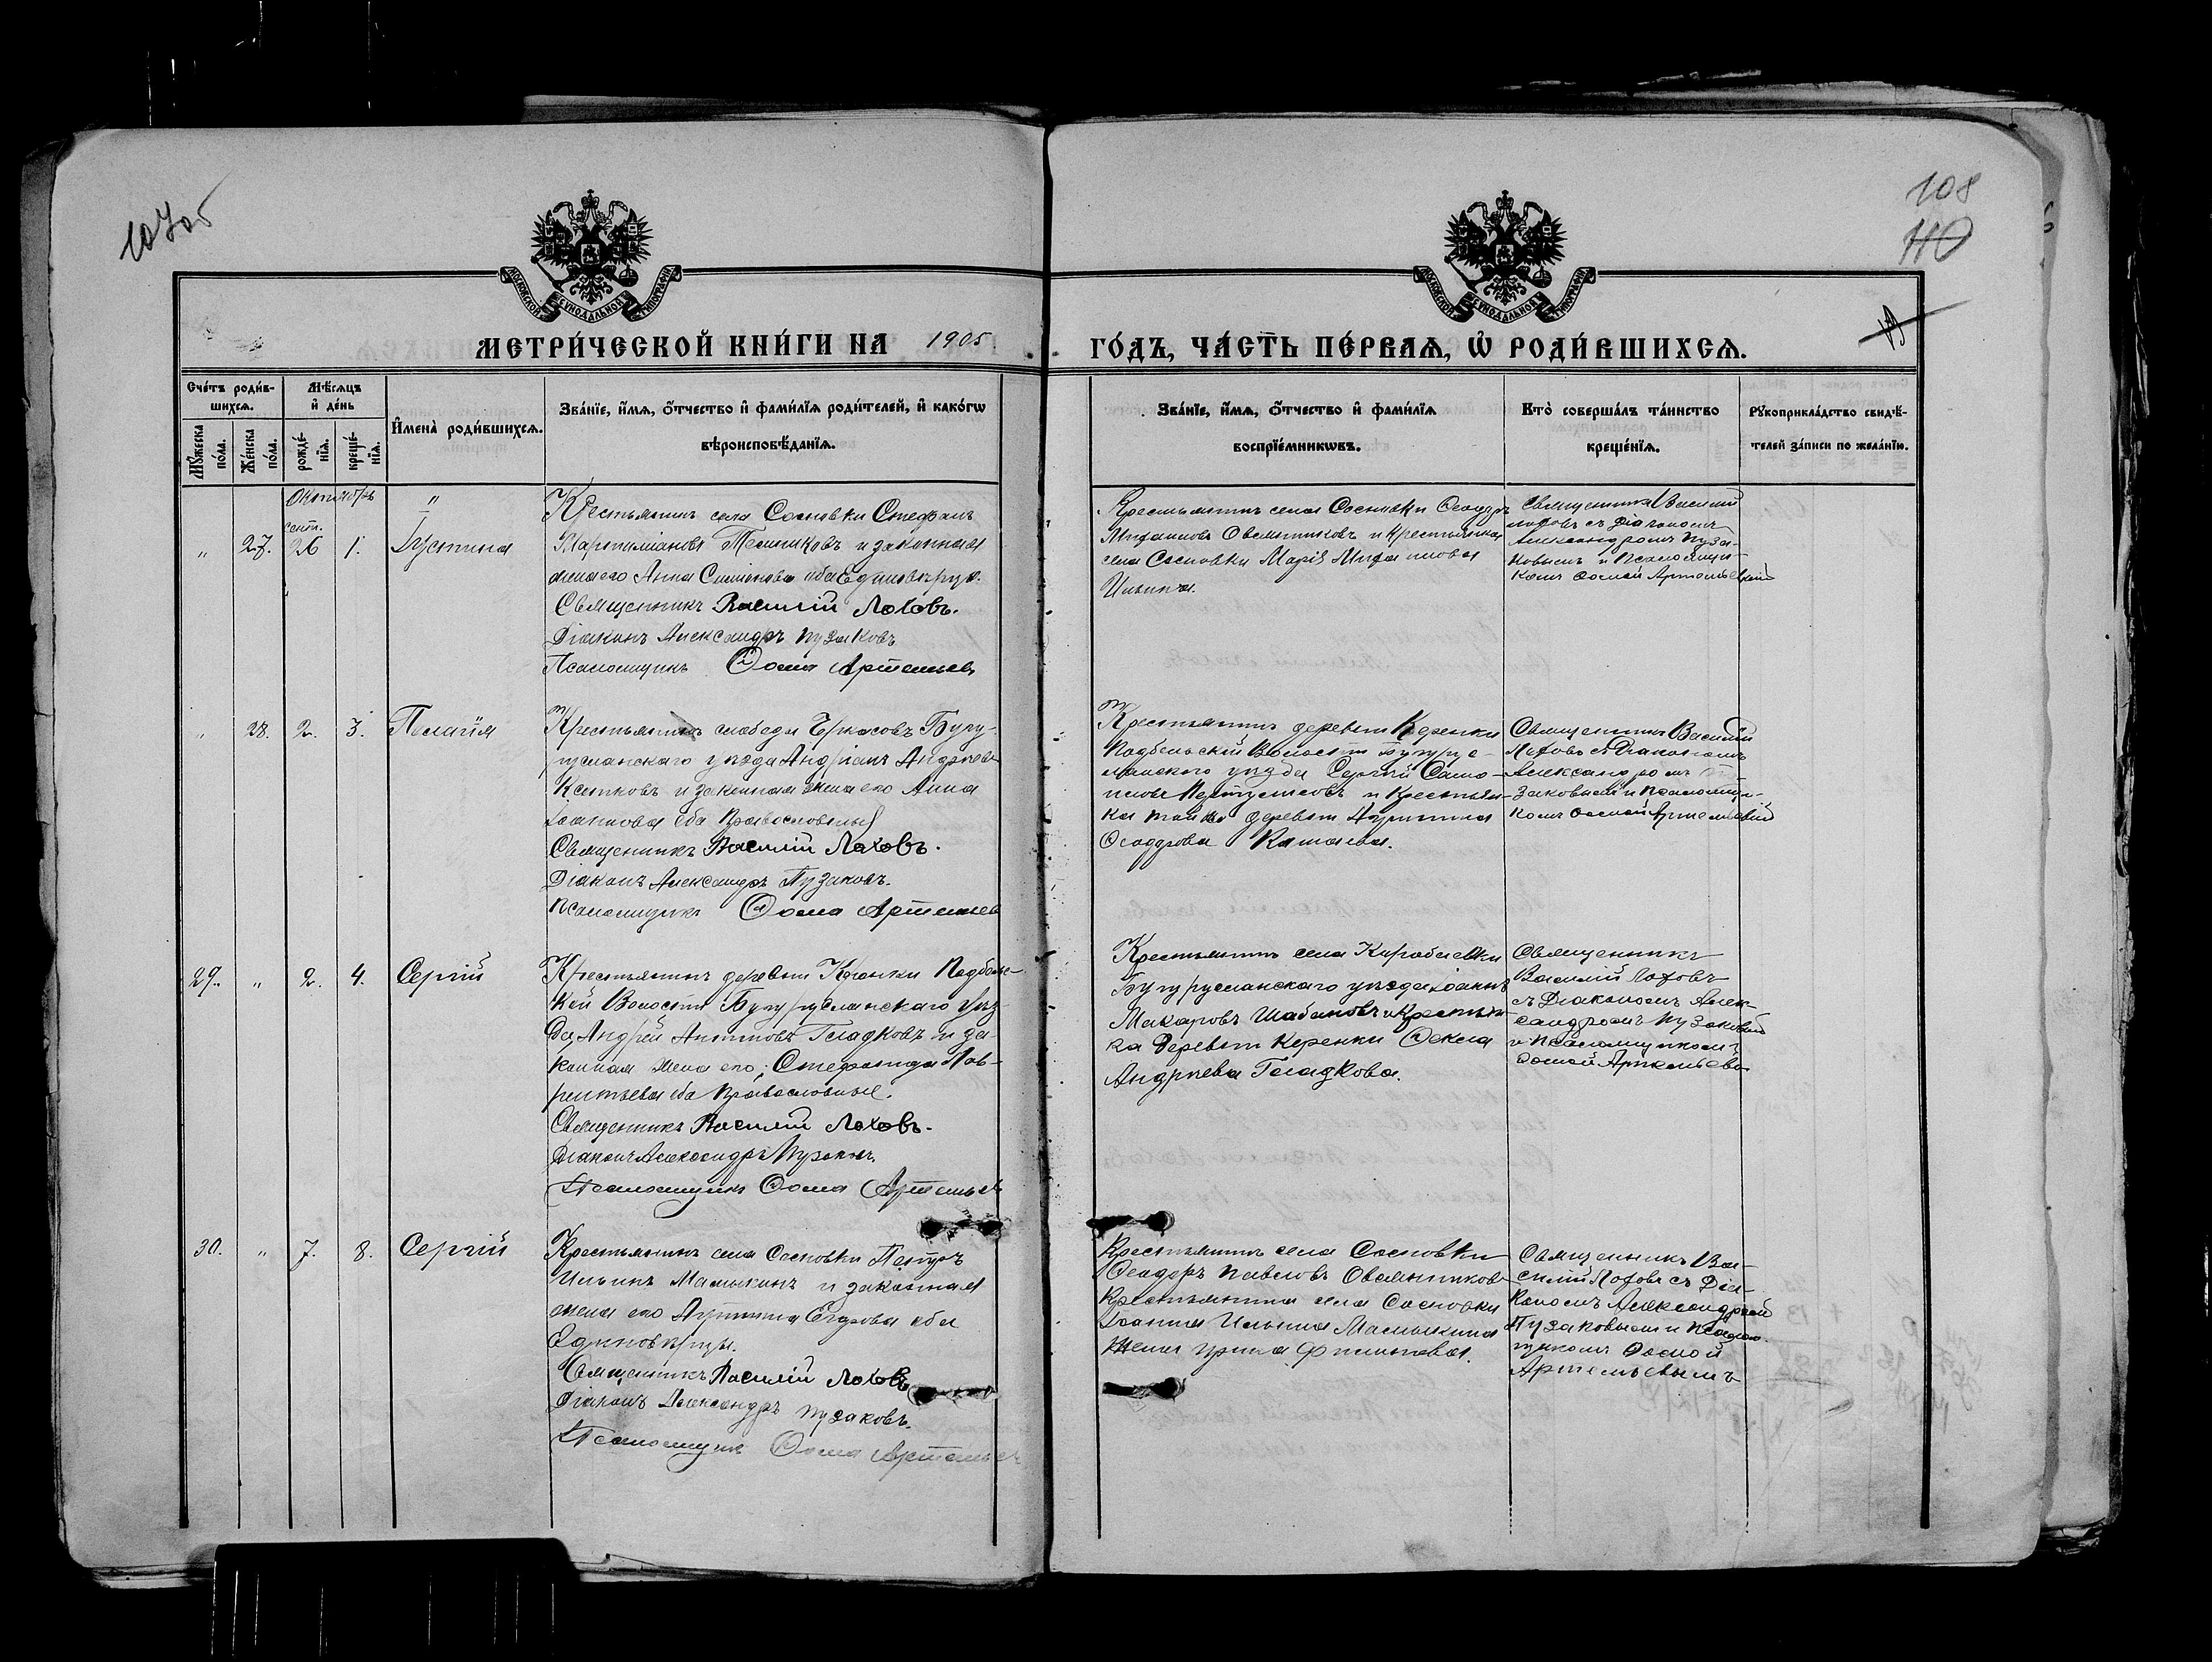 107об
108
110
МОСКОВСКОЙ СѴНОДАЛЬНОЙ ТИПОГРАФІИ
МОСКОВСКОЙ СѴНОДАЛЬНОЙ ТИПОГРАФІИ
МЕТРИ́ЧЕСКОЙ КНИ́ГИ НА 1905
ГО́ДЪ, ЧА́СТЬ ПЕ́РВАѦ, Ѡ҆ РОДИ́ВШИХСѦ.
Сче́тъ роди́в-
шихсѧ.
Мꙋ́жеска по́ла.
Же́нска по́ла.
Мѣ́сѧцъ
и҆ де́нь
рожде́-
нїѧ.
креще́-
нїѧ.
И҆мена̀ роди́вшихсѧ.
Зва́нїе, и҆́мѧ, ѻ҆́тчество и҆ фами́лїѧ роди́телей, и҆ како́гѡ
вѣроисповѣ́данїѧ.
Зва́нїе, и҆́мѧ, ѻ҆́тчество и҆ фами́лїѧ
воспрїе́мникѡвъ.
Кто̀ соверша́лъ та́инство
креще́нїѧ.
Рꙋкоприкла́дство свидѣ́-
телей за́писи по жела́нїю.
Октябрь
„ 27. сент. 26 1. Іустина
Крестьянинъ села Сосновки Стефанъ
законная
жена его Анна Симеонова оба
Священникъ Василій Лоховъ.
Діаконъ Александръ Пузаковъ
Псаломщикъ Ѳома Артемьевъ
Крестьянинъ села Сосновки Ѳеодоръ
Овсянниковъ и крестьянка
села Сосновки Марія
Ильина.
Священникъ Василій
Лоховъ съ діакономъ
Александромъ Пуза-
ковымъ и псаломщи-
комъ Ѳомой
„ 28. 2. 3. Пелагія
Крестьянинъ слободы Бугу-
русланскаго уѣзда Андрей
и законная жена его Анна
Іоаннова оба Православные
Священникъ Василій Лоховъ.
Діаконъ Александръ Пузаковъ.
Псаломщикъ Ѳома Артемьевъ
Крестьянинъ деревни Керенки
Подбельской волости Бугурус-
ланскаго уѣзда Сергій
и крестьян-
ка той же деревни
Ѳеодорова
Священникъ Василій
Лоховъ съ Діакономъ
Александромъ Пу-
заковымъ и псаломщи-
комъ Ѳомой
29. „ 2. 4. Сергій
Крестьянинъ деревни Керенки Подбельс-
кой Волости Бугурусланскаго уѣз-
да, Андрей Антиповъ Гладковъ и за-
конная жена его; Стефанида Лав-
рентьева оба православные.
Священникъ Василій Лоховъ.
Діаконъ Александръ Пузаковъ.
Псаломщикъ Ѳома Артемьевъ
Крестьянинъ села
Бугурусланскаго уѣзда Іоаннъ
Макаровъ Шабановъ и крестьян-
ка деревни Керенки Ѳекла
Андреева Гладкова.
Священникъ
Василій Лоховъ
съ Діакономъ Алек-
сандромъ Пузаковымъ
и псаломщикомъ
Ѳомой
30. „ 7. 8. Сергій
Крестьянинъ села Сосновки Петръ
Ильинъ Малыкинъ и законная
жена его Егорова оба
Единовѣрцы.
Священникъ Василій Лоховъ
Діаконъ Александръ Пузаковъ.
Псаломщикъ Ѳома Артемьевъ
Крестьянинъ села Сосновки
Ѳеодоръ Павловъ Овсянниковъ
Крестьянина села Сосновки
Іоанна Ильина Малыкина
жена Филиппова.
Священникъ Ва-
силій Лоховъ съ Діа-
кономъ Александромъ
Пузаковымъ и псалом-
щикомъ Ѳомой
Артемьевымъ